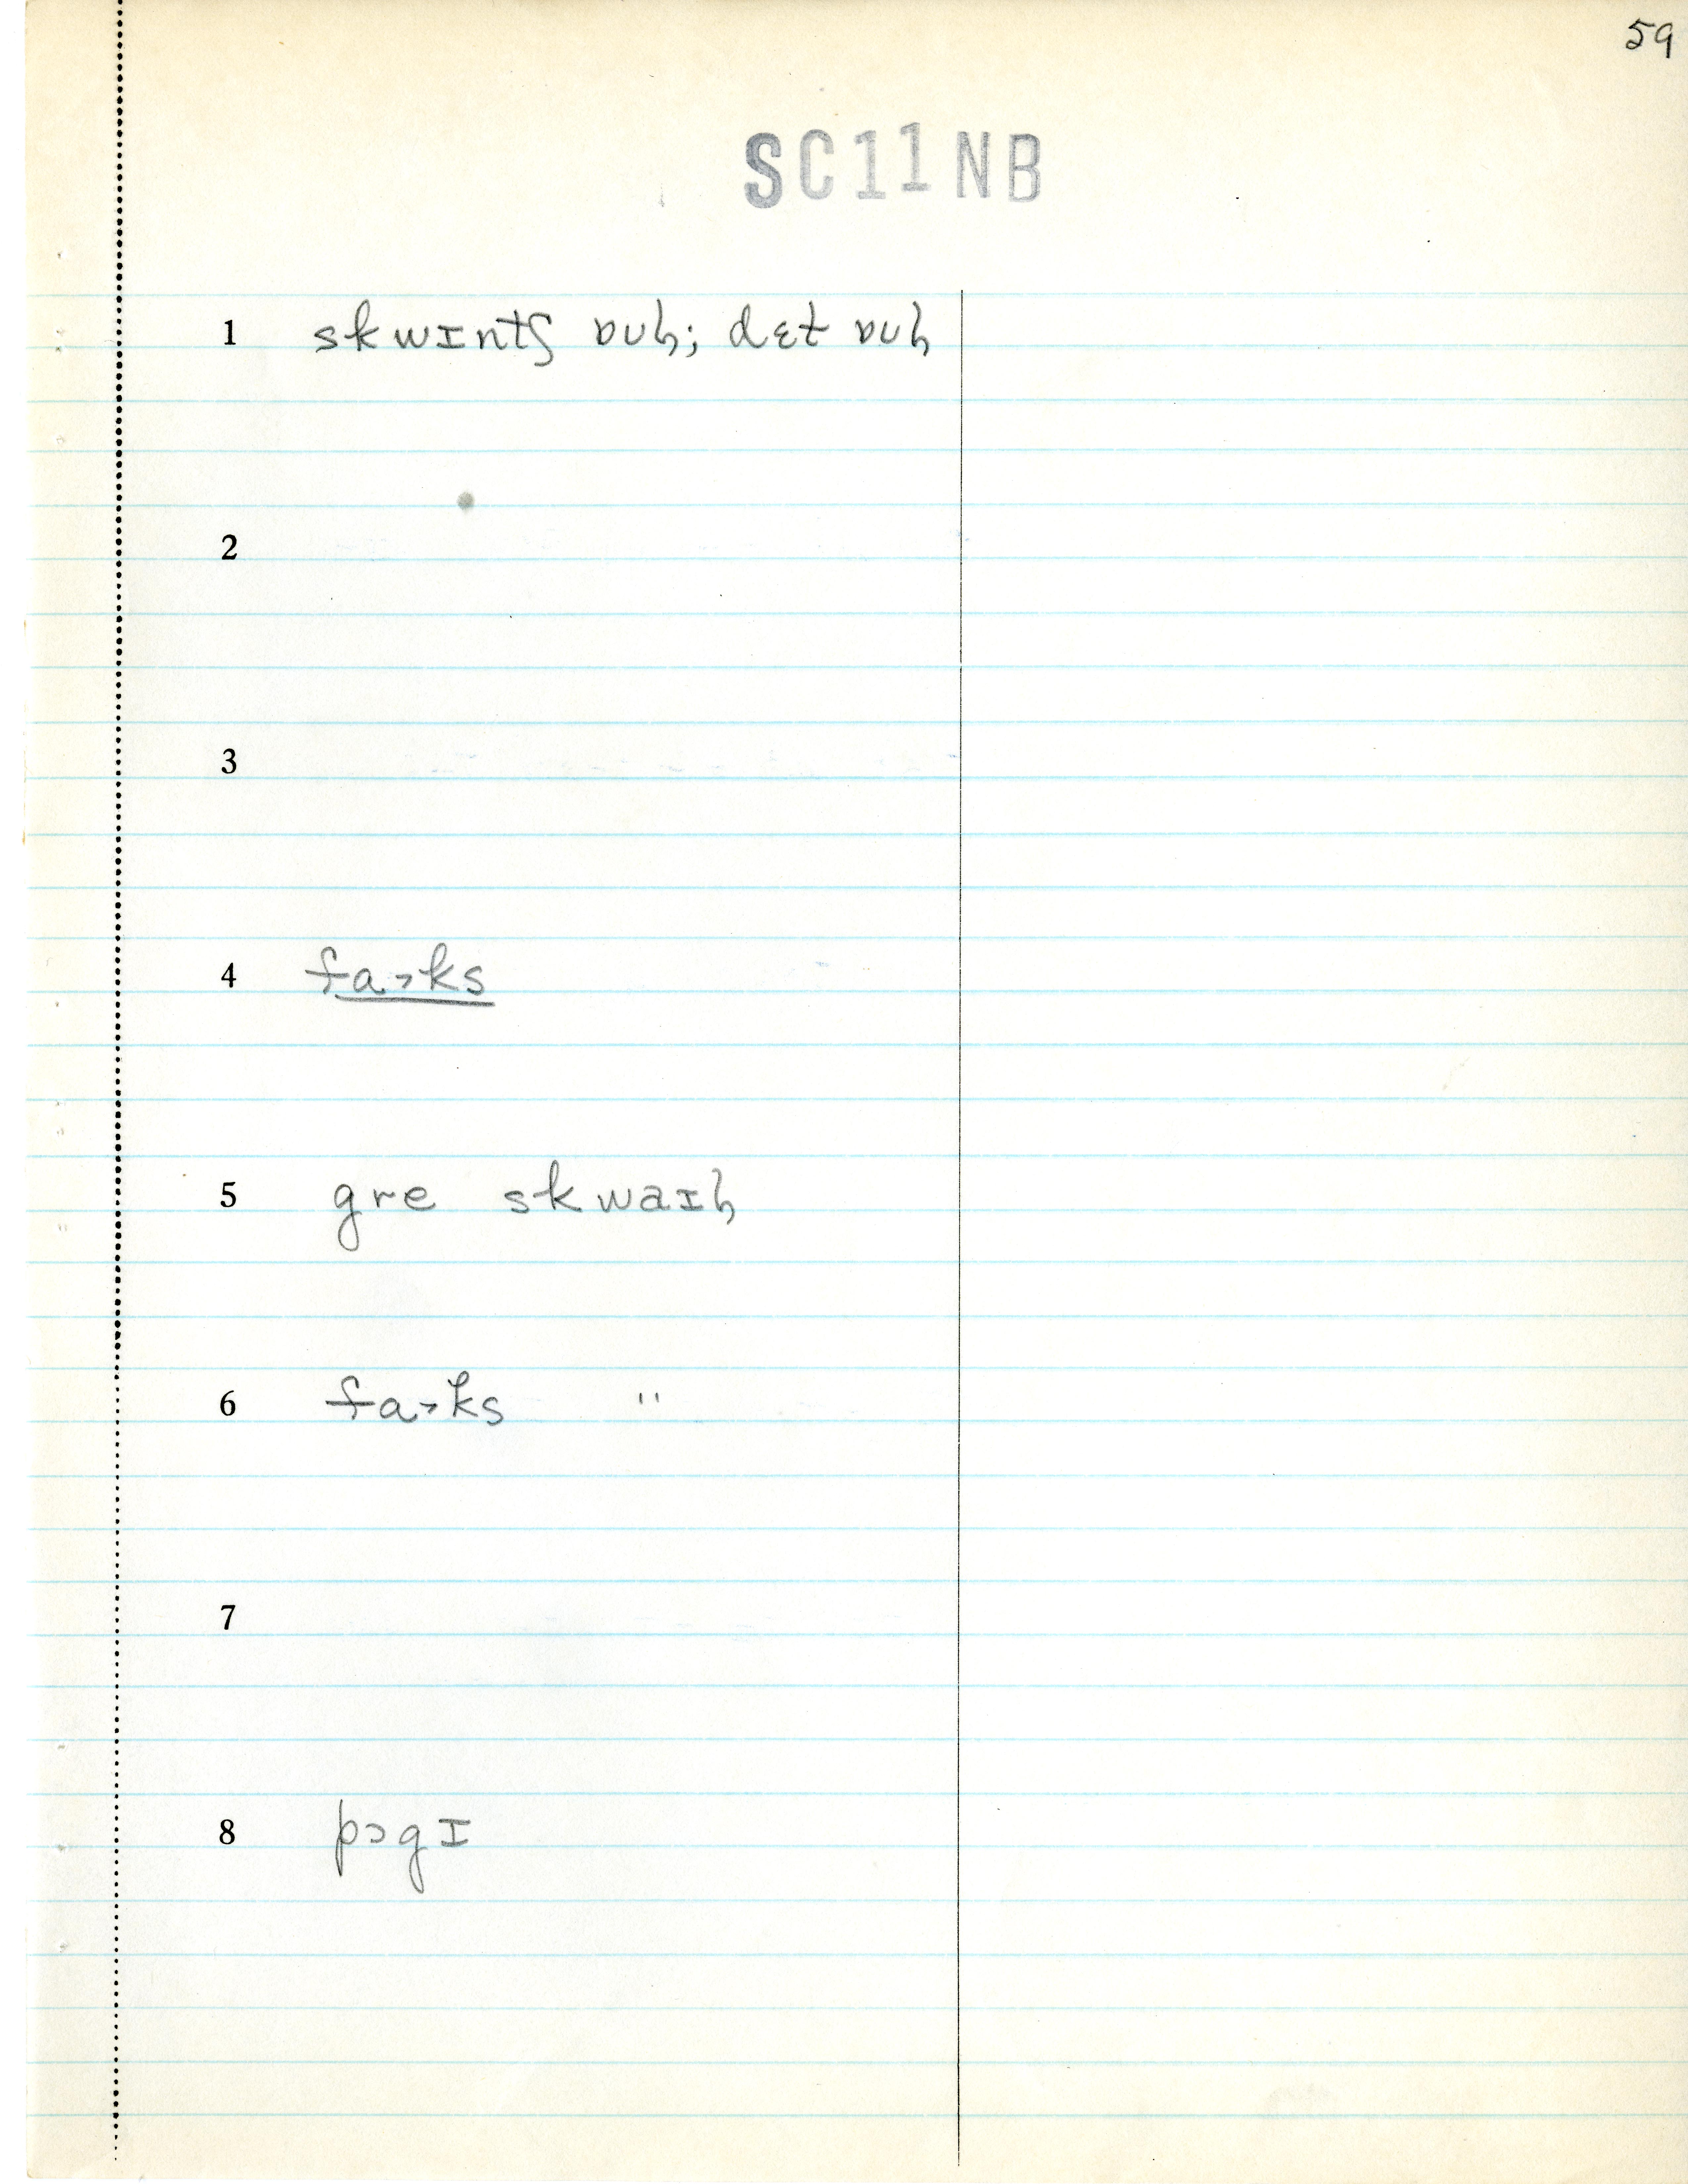 59
SC11NB
1 skwɪntʃ ɒʊɦ; dɛt ɒʊɦ
2
3
4 fa˃ks
5 gre skwaɪɦ
6 fa˃ks "
7
8 pɔgɪ